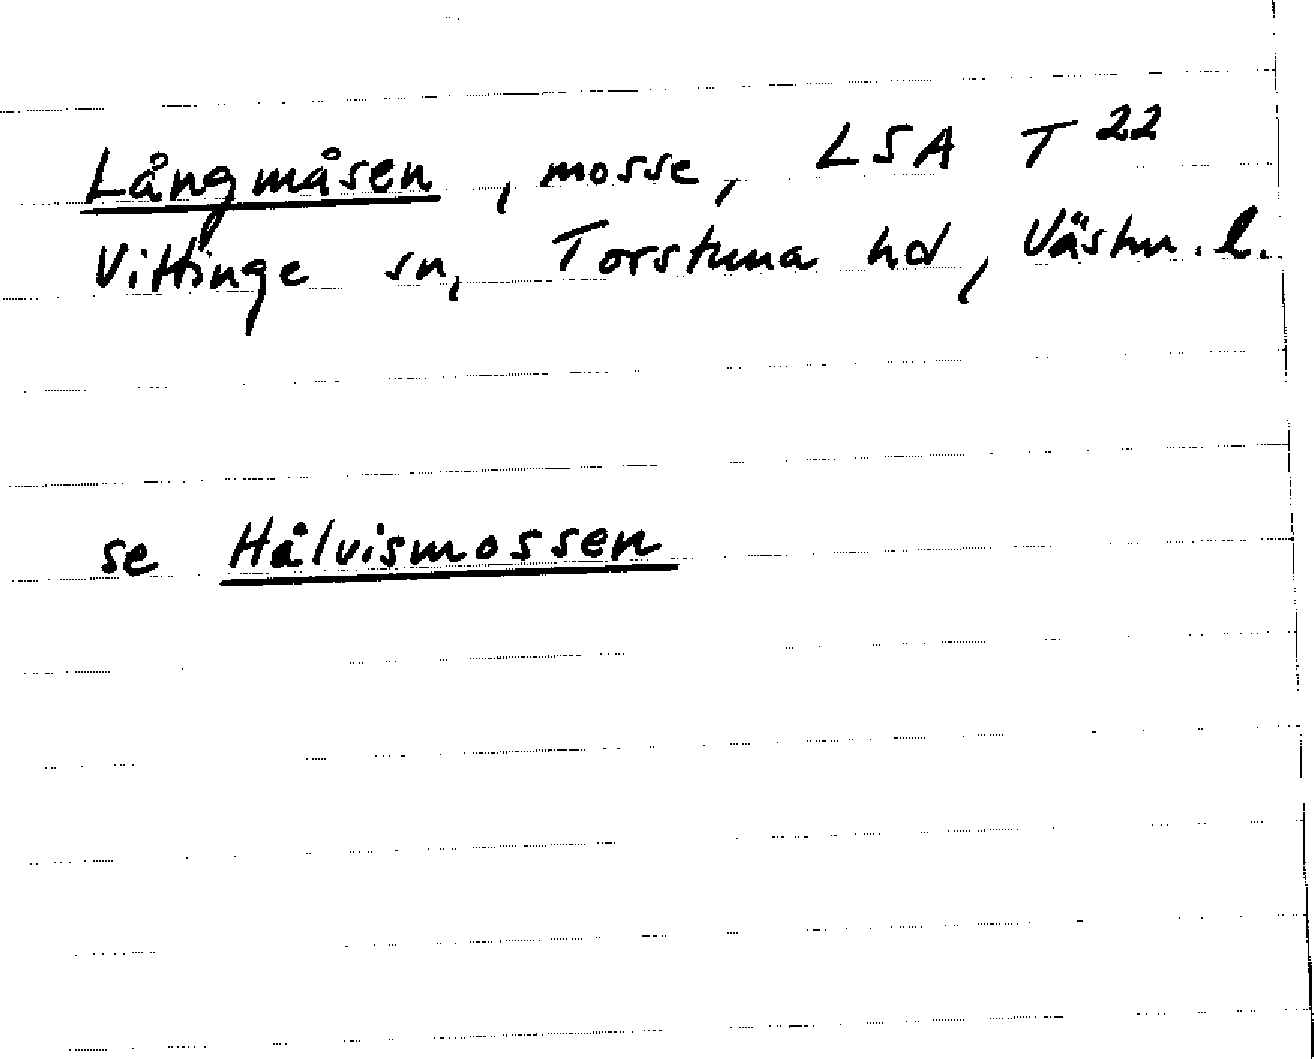 Långmåsen, mosse, LSA T 22
Vittinge sn, Torstuna hd, Västm. l.
se Hålvismossen